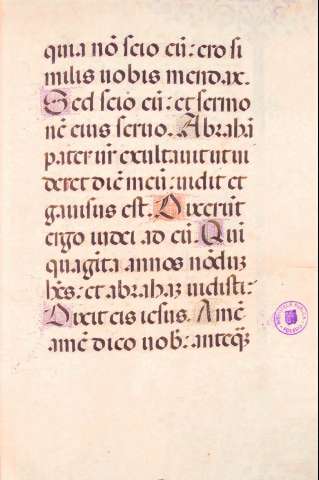 quia nō scio eū: ero si
milis uobis mendax.
Sed scio eū: et sermo
nē eius seruo. Abrahā
pater ur̄ exultauit ut ui
deret diē meū: uidit et
gauisus est. Dixerūt
ergo iudei ad eū. Qui
quagīta annos nōdū
hēs: et abrahaz uidisti:
Dixit eis iesus. Amē
amē dico uob: anteq̄z